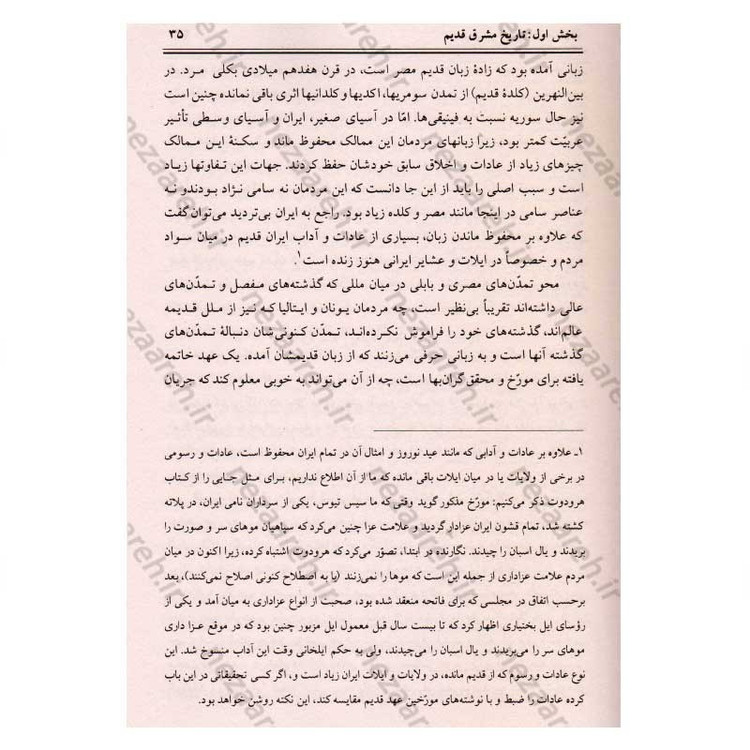 بخش اول: تاریخ مشرق قدیم ۳۵
زبانی آمده بود که زادهٔ زبان قدیم مصر است، در قرن هفدهم میلادی بکلی مرد. در
بین‌النهرین (کلدهٔ قدیم) از تمدن سومریها، اکدیها و کلدانیها اثری باقی نمانده چنین است
نیز حال سوریه نسبت به فینیقی‌ها. امّا در آسیای صغیر، ایران و آسیای وسطی تأثیر
عربیّت کمتر بود، زیرا زبانهای مردمان این ممالک محفوظ ماند و سکنهٔ این ممالک
چیزهای زیاد از عادات و اخلاق سابق خودشان حفظ کردند. جهات این تفاوتها زیاد
است و سبب اصلی را باید از این جا دانست که این مردمان نه سامی نژاد بودندو نه
عناصر سامی در اینجا مانند مصر و کلده زیاد بود. راجع به ایران بی‌تردید می‌توان گفت
که علاوه بر محفوظ ماندن زبان، بسیاری از عادات و آداب ایران قدیم در میان سواد
مردم و خصوصاً در ایلات و عشایر ایرانی هنوز زنده است۱.
محو تمدّن‌های مصری و بابلی در میان مللی که گذشته‌های مفصل و تمدّن‌های
عالی داشته‌اند تقریباً بی‌نظیر است، چه مردمان یونان و ایتالیا که نیز از ملل قدیمه
عالم‌اند، گذشته‌های خود را فراموش نکرده‌اند، تمدّن کنونی‌شان دنبالهٔ تمدّن‌های
گذشته آنها است و به زبانی حرفی می‌زنند که از زبان قدیمشان آمده. یک عهد خاتمه
یافته برای مورّخ و محقق گران‌بها است، چه از آن می‌تواند به خوبی معلوم کند که جریان
۱ـ علاوه بر عادات و آدابی که مانند عید نوروز و امثال آن در تمام ایران محفوظ است، عادات و رسومی
در برخی از ولایات یا در میان ایلات باقی مانده که ما از آن اطلاع نداریم، برای مثل جایی را از کتاب
هرودوت ذکر می‌کنیم: مورّخ مذکور گوید وقتی که ما سیس تیوس، یکی از سرداران نامی ایران، در پلاته
کشته شد، تمام قشون ایران عزادار گردید و علامت عزا چنین می‌کرد که سپاهیان موهای سر و صورت را
بریدند و یال اسبان را چیدند. نگارنده در ابتدا، تصوّر می‌کرد که هرودوت اشتباه کرده، زیرا اکنون در میان
مردم علامت عزاداری از جمله این است که موها را نمی‌زنند (یا به اصطلاح کنونی اصلاح نمی‌کنند)، بعد
برحسب اتفاق در مجلسی که برای فاتحه منعقد شده بود، صحبت از انواع عزاداری به میان آمد و یکی از
رؤسای ایل بختیاری اظهار کرد که تا بیست سال قبل معمول ایل مزبور چنین بود که در موقع عزا داری
موهای سر را می‌بریدند و یال اسبان را می‌چیدند، ولی به حکم ایلخانی وقت این آداب منسوخ شد. این
نوع عادات و رسوم که از قدیم مانده، در ولایات و ایلات ایران زیاد است و، اگر کسی تحقیقاتی در این باب
کرده عادات را ضبط و با نوشته‌های مورّخین عهد قدیم مقایسه کند، این نکته روشن خواهد بود.
nezaareh.ir